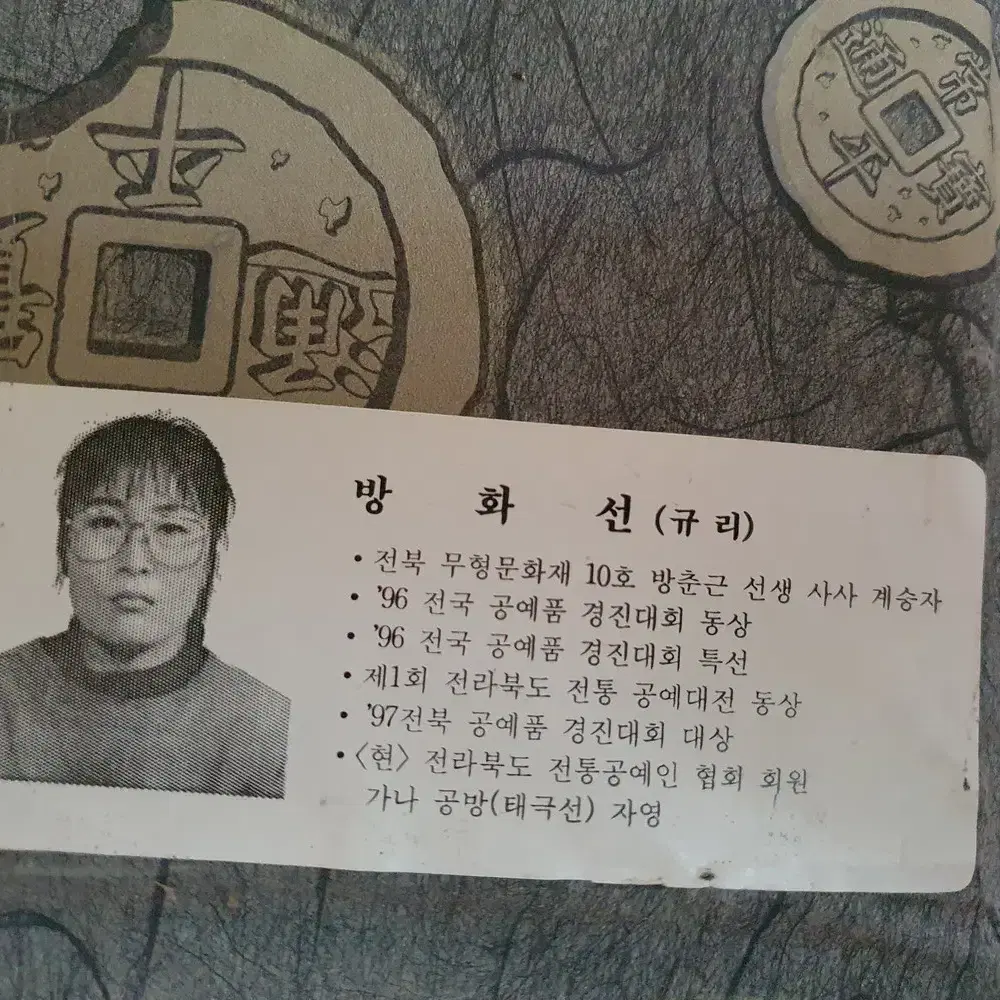 平
寶
常
平
通
寶
방 화 선 (규 리)
• 전북 무형문화재 10호 방춘근 선생 사사 계승자
• '96 전국 공예품 경진대회 동상
• '96 전국 공예품 경진대회 특선
• 제1회 전라북도 전통 공예대전 동상
• '97전북 공예품 경진대회 대상
• <현> 전라북도 전통공예인 협회 회원
가나 공방(태극선) 자영